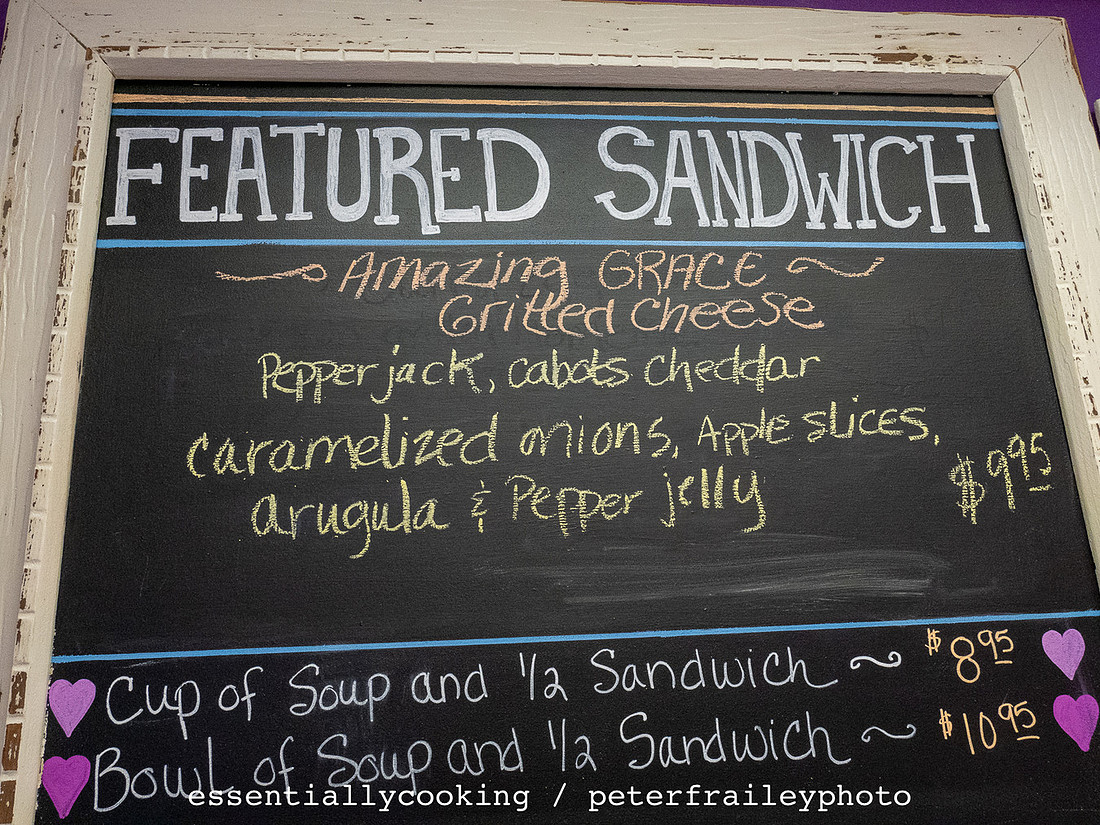 FEATURED SANDWICH
Amazing GRACE
Grilled cheese
Pepper jack, cabots cheddar
caramelized onions, Apple slices,
arugula & Pepper jelly $9.95
Cup of Soup and 1/2 Sandwich ~ $8.95
Bowl of Soup and 1/2 Sandwich ~ $10.95
essentiallycooking / peterfraileyphoto